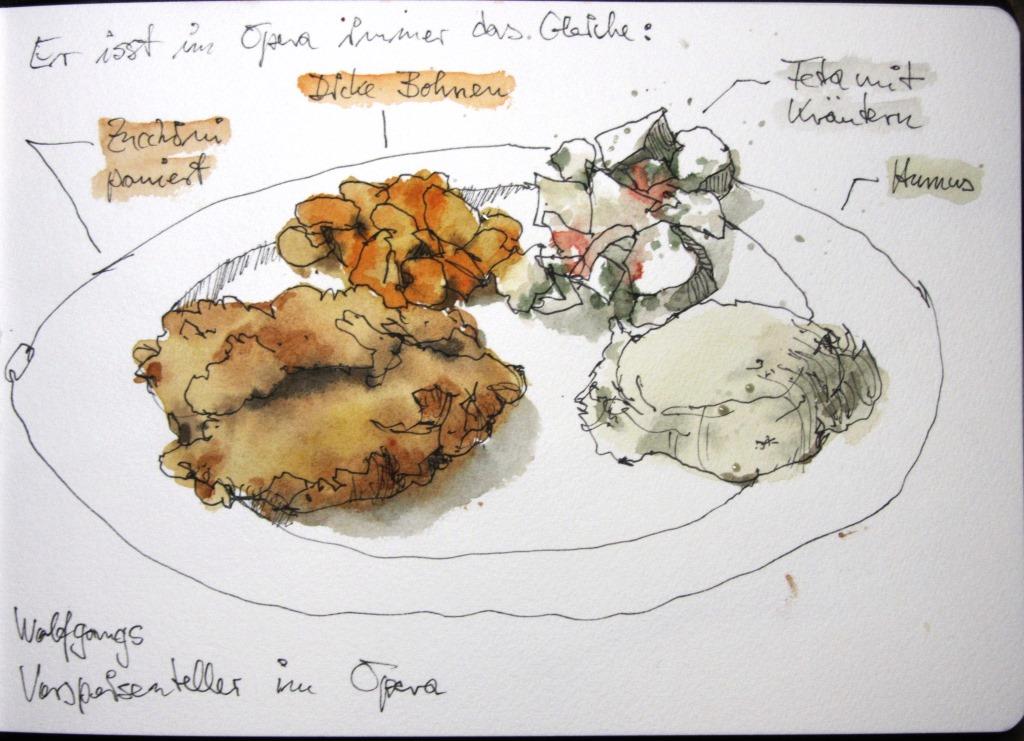 Er isst im Opera immer das Gleiche:
Dicke Bohnen
Feta mit
Kräutern
Zucchini
paniert
Humus
Wolfgangs
Vorspeisenteller im Opera